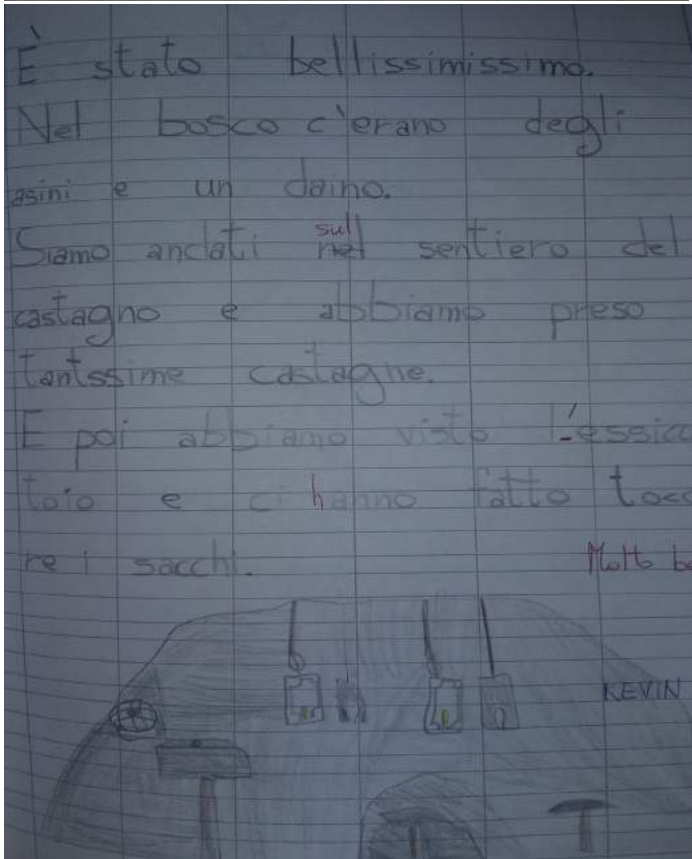 È stato bellissimissimo.
Nel bosco c'erano degli
asini e un daino.
Siamo andati sul
nel sentiero del
castagno e abbiamo preso
tantssime castagne.
E poi abbiamo visto l'essicc
toio e ci hanno fatto tocc
re i sacchi.
Molto b
KEVIN